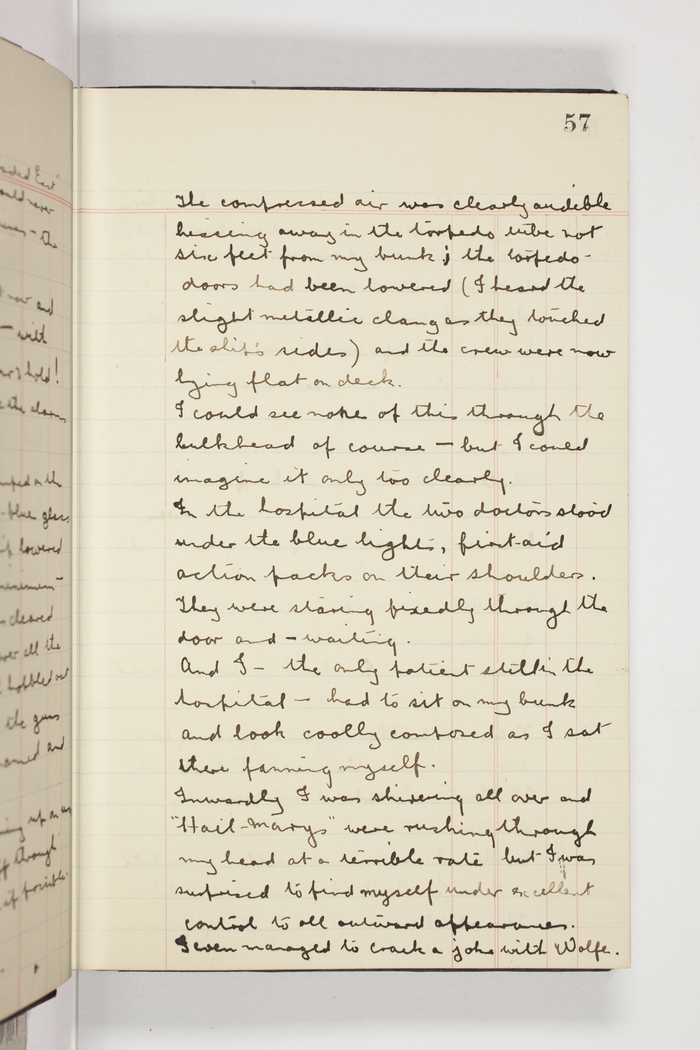 57
The compressed air was clearly audible
hissing away in the torpedo tube not
six feet from my bunk; the torpedo-
doors had been lowered (I heard the
slight metallic clang as they touched
the ship's sides) and the crew were now
lying flat on deck.
I could see none of this through the
bulkhead of course - but I could
imagine it only too clearly.
In the hospital the two doctors stood
under the blue lights, first-aid
action packs on their shoulders.
They were staring fixedly through the
door and - waiting.
And I - the only patient still in the
hospital - had to sit on my bunk
and look coolly composed as I sat
there fanning myself.
Inwardly I was shivering all over and
"Hail-Marys" were rushing through
my head at a terrible rate but I was
surprised to find myself under excellent
control to all outward appearances.
I even managed to crack a joke with Wolfe.
East
- the
and
- with
hold!
the alarm
on the
-blue glass
lowered
cleared
over all the
hobbled out
the guns
and
up on
through
if possible.